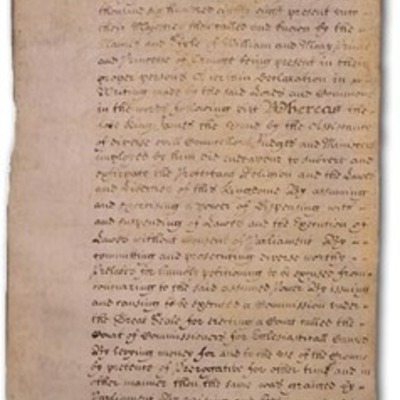 thousand six hundred eighty eight present unto
their Majesties then called and known by the
Names and Stile of William and Mary Prince
and Princesse of Orange being present in their
proper persons A certain Declaration in
Writing made by the said Lords and Commons
in the words following viz Whereas the
late King James the Second by the Assistance
of diverse evill Councellors Judges and Ministers
imployed by him did endeavour to subvert and
extirpate the Protestant Religion and the Lawes
and Liberties of this Kingdome By assuming
and exercising a power of dispensing with
and suspending of Lawes and the Execution of
Lawes without consent of Parliament By
committing and prosecuting diverse worthy
Prelates for humbly petitioning to be excused from
concurring to the said assumed Power By issuing
and causing to be executed a Commission under
the Great Seale for erecting a Court called the
Court of Commissioners for Ecclesiasticall Causes
By levying money for and to the use of the Crowne
by pretence of Prerogative for other time and in
other manner then the same was granted by
Parliament By raising and